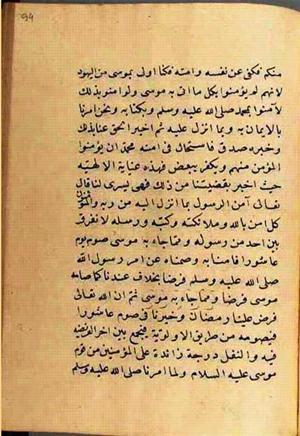 94
منكم فكنى عن نفسه وامته فكنا اولى بموسى من اليهود
لانهم لم يؤمنوا بكل ما اتى به موسى ولو امنوا بذلك
لآمنوا بمحمد صلى الله عليه وسلم وبكتابه ونحن امرنا
بالايمان به وبما انزل عليه ثم اخبرنا الحق عنا بذلك
وخبره صدق فاستحال في امته محمد ان يؤمنوا
المؤمن منهم ويكفر ببعض فهذه عناية الالهية
حيث اخبر بقضيتنا من ذلك فهى بسرى لنا قال
تعالى آمن الرسول بما انزل اليه من ربه والمؤمنون
كل امن بالله وملائكته وكتبه ورسله لا نفرق
بين احد من رسوله ومما جاء به موسى صوم يوم
عاشورا فامنا به وصمناه عن امر رسول الله
صلى الله عليه وسلم فرضا بخلاف عندنا كما صامه
موسى فرضا ومما جاء به موسى ثم ان الله تعالى
فرض علينا رمضان وخيرنا في صوم عاشورا
فنصومه من طريق الاولوية فيجمع بين اجر الفريضة
فيه والنفل درجة زائدة على المؤمنين من قوم
موسى عليه السلام ولما امرنا صلى الله عليه وسلم